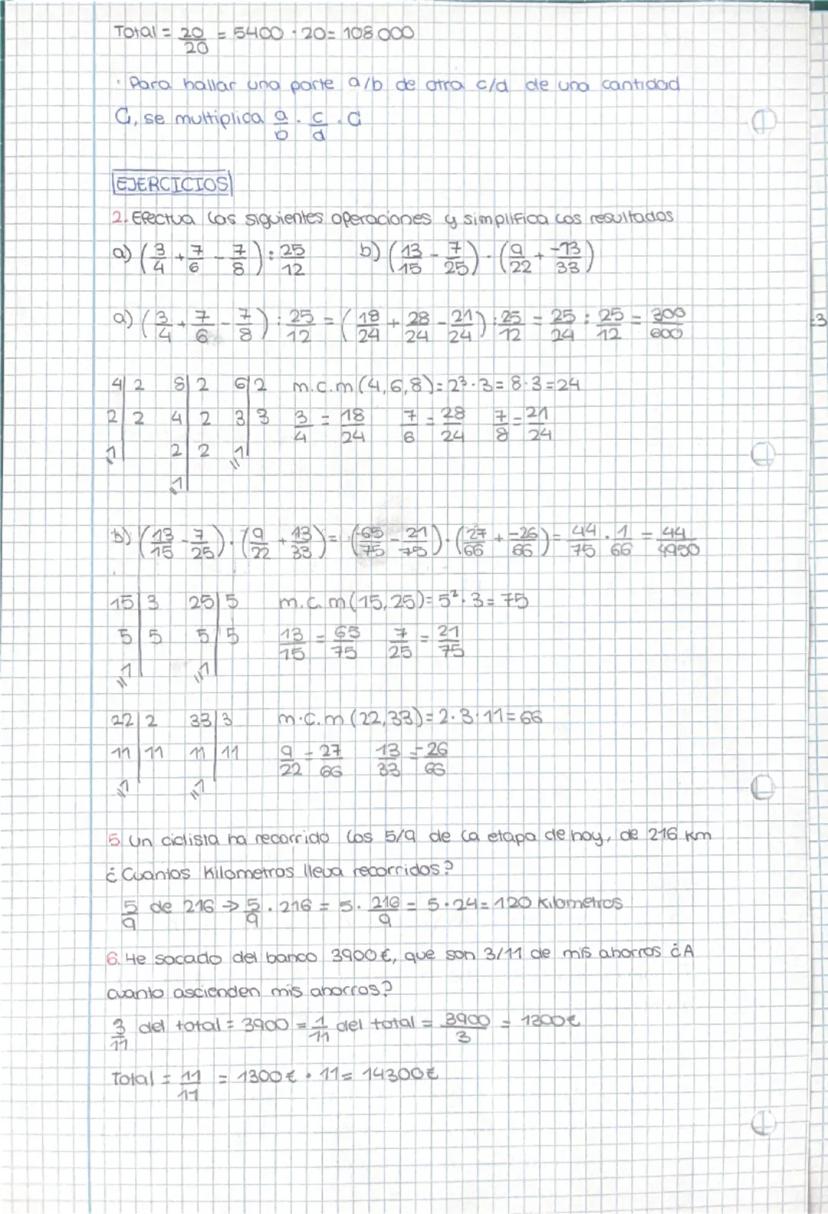 Total = 20/20 = 5400 · 20 = 108 000
· Para hallar una parte a/b de otra c/d de una cantidad
C, se multiplica a/b · c/d · C
EJERCICIOS
2. Efectua los siguientes operaciones y simplifica los resultados
a) (3/4 + 7/6 - 7/8) : 25/12 b) (13/15 - 7/25) · (9/22 + -13/33)
a) (3/4 + 7/6 - 7/8) : 25/12 = (18/24 + 28/24 - 21/24) : 25/12 = 25/24 : 25/12 = 300/600
4|2 8|2 6|2 m.c.m (4,6,8) = 2³ · 3 = 8 · 3 = 24
2|2 4|2 3|3 3/4 = 18/24 7/6 = 28/24 7/8 = 21/24
1| 2|2 1|
1|
b) (13/15 - 7/25) · (9/22 + 13/33) = (65/75 - 21/75) · (27/66 + -26/66) = 44/75 · 1/66 = 44/4950
15|3 25|5 m.c.m (15,25) = 5² · 3 = 75
5|5 5|5 13/15 = 65/75 7/25 = 21/75
1| 1|
22|2 33|3 m.c.m (22,33) = 2 · 3 · 11 = 66
11|11 11|11 9/22 = 27/66 13/33 = -26/66
1| 1|
5. Un ciclista ha recorrido los 5/9 de la etapa de hoy, de 216 km
¿Cuantos Kilometros lleva recorridos?
5/9 de 216 → 5/9 · 216 = 5 · 216/9 = 5 · 24 = 120 Kilometros
6. He sacado del banco 3900€, que son 3/11 de mis ahorros ¿A
cuanto ascienden mis ahorros?
3/11 del total = 3900 = 1/11 del total = 3900/3 = 1300€
Total = 11/11 = 1300€ · 11 = 14300€